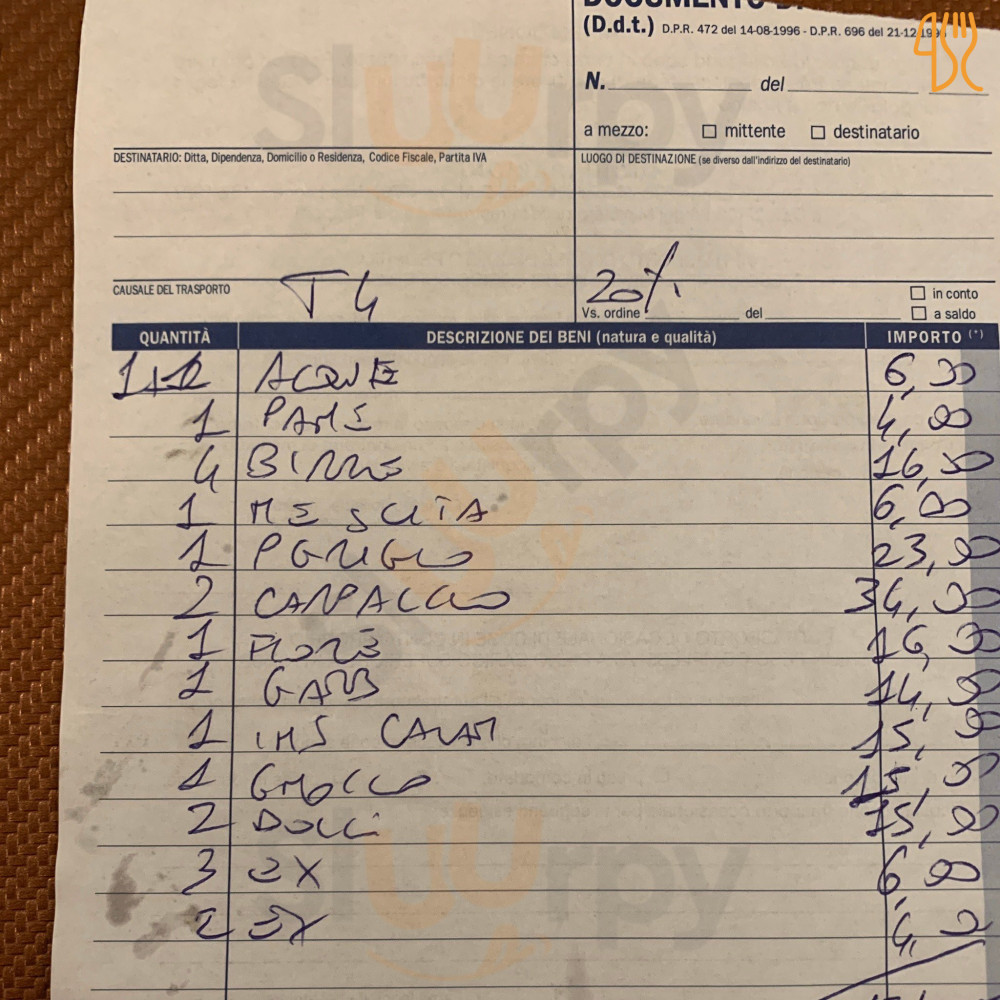 (D.d.t.) D.P.R. 472 del 14-08-1996 - D.P.R. 696 del 21-12-1996
N. del
a mezzo: mittente destinatario
DESTINATARIO: Ditta, Dipendenza, Domicilio o Residenza, Codice Fiscale, Partita IVA
LUOGO DI DESTINAZIONE (se diverso dall'indirizzo del destinatario)
CAUSALE DEL TRASPORTO T4
20%
Vs. ordine del
in conto
a saldo
QUANTITÀ DESCRIZIONE DEI BENI (natura e qualità) IMPORTO (*)
1+1 ACQUE 6,00
1 PANE 4,00
4 BIRRE 16,00
1 MESCITA 6,00
1 23,00
2 CARPACCIO 34,00
1 FIORE 16,00
1 GAMB 14,00
1 INS CALAM 15,00
1 GNOCCO 15,00
2 DOLCI 15,00
3 EX 6,00
2 EX 4,0
sluurpy
sluurpy
sluurpy